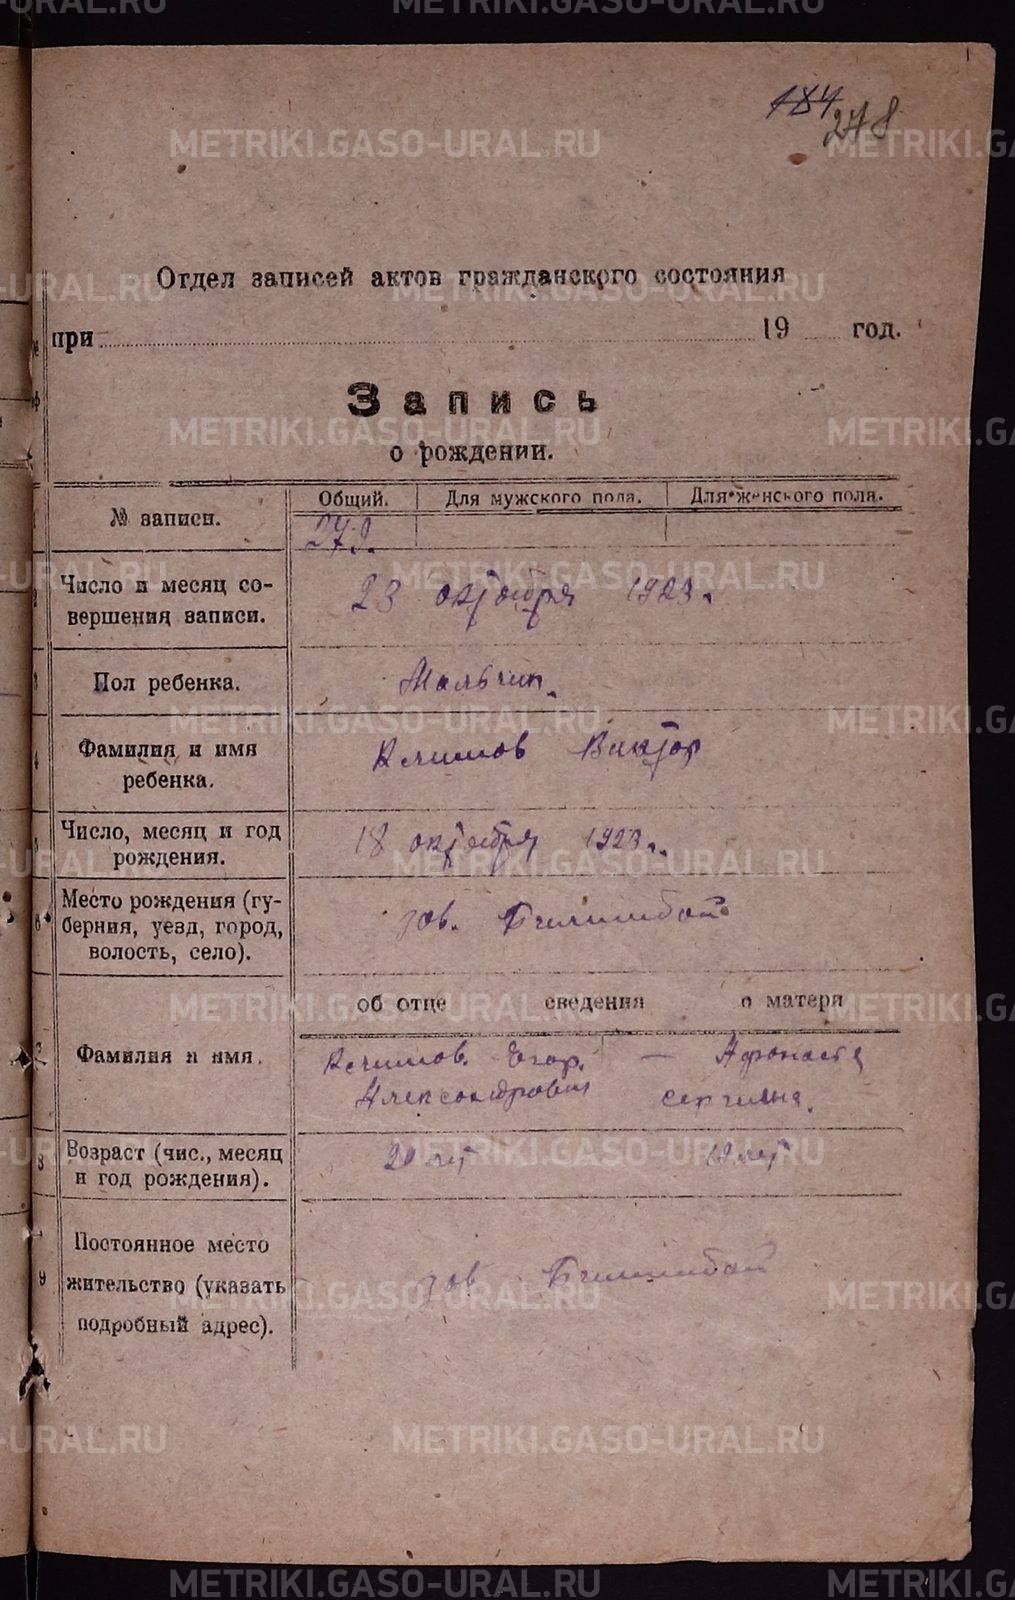 184
278
Отдел записей актов гражданского состояния
при 19 год.
Запись
о рождении.
№ записи.
Общий. Для мужского пола. Для женского пола.
Число и месяц со-
вершения записи.
23 октября 1923 г.
Пол ребенка.
Мальчик.
Фамилия и имя
ребенка.
Климов Виктор
Число, месяц и год
рождения.
18 октября 1923 г.
Место рождения (гу-
берния, уезд, город,
волость, село).
зав. Билимбай
об отце сведения о матери
Фамилия и имя.
Климов. Егор.
Александрович
— Афонаста
сергиевна.
Возраст (чис., месяц
и год рождения).
20 лет 19 лет
Постоянное место
жительство (указать
подробный адрес).
зав Билимбай
METRIKI.GASO-URAL.RU